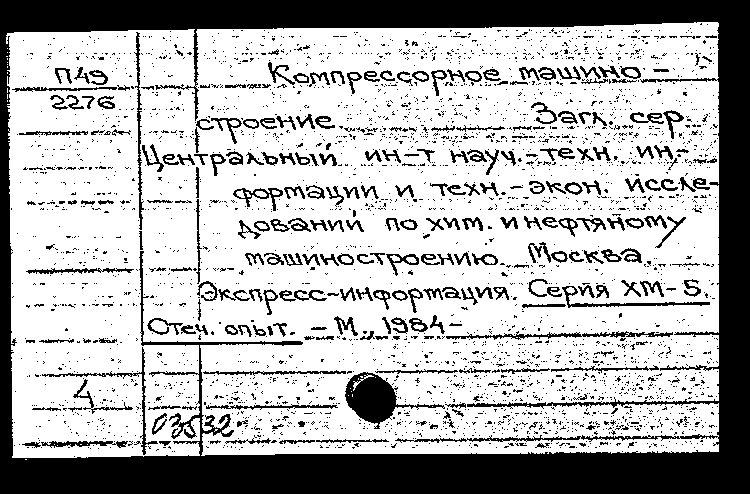 П49 Компрессорное машино-
2276
строение Загл. сер.
Центральный ин-т науч.-техн. ин-
формации и техн.-экон. иссле-
дований по хим. и нефтяному
машиностроению. Москва.
Экспресс-информация. Серия ХМ-5.
Отеч. опыт. - М., 1984-
4
03532